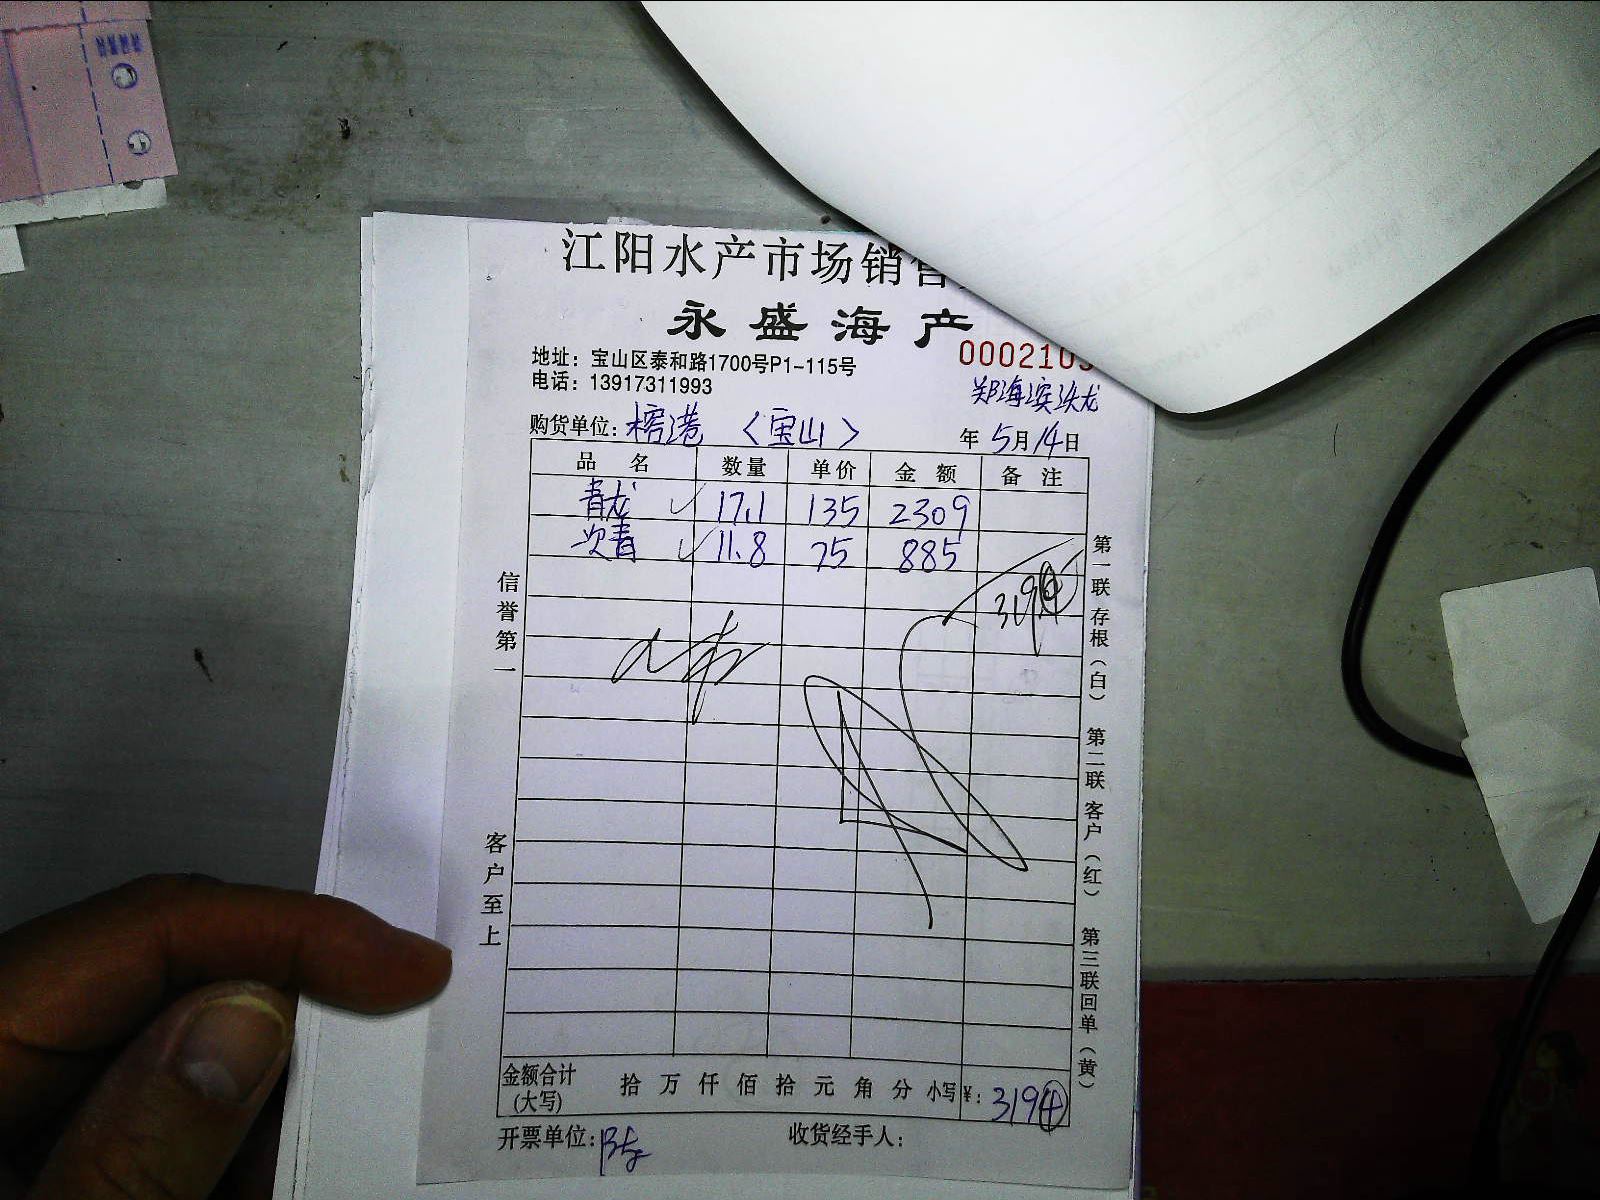 江阳水产市场销售
永盛海产
地址：宝山区泰和路1700号P1-115号
0002103
电话：13917311993
郑海滨沃龙
购货单位：榕港〈宝山〉
年5月14日
品名 数量 单价 金额 备注
青龙 ✓ 17.1 135 2309
次青 ✓ 11.8 75 885
3194
信誉第一
客户至上
第一联存根（白） 第二联客户（红） 第三联回单（黄）
金额合计 拾万仟佰拾元角分 小写¥：3194
（大写）
开票单位： 收货经手人：